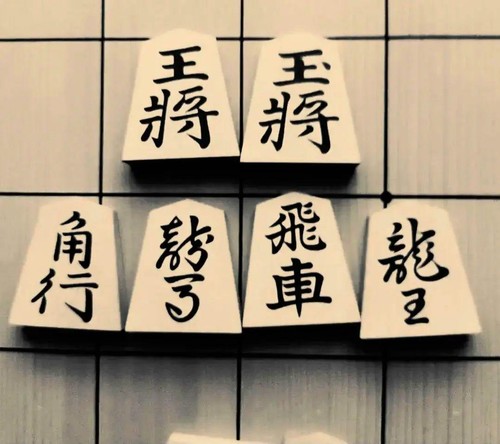 王將
玉將
角行
龍馬
飛車
龍王